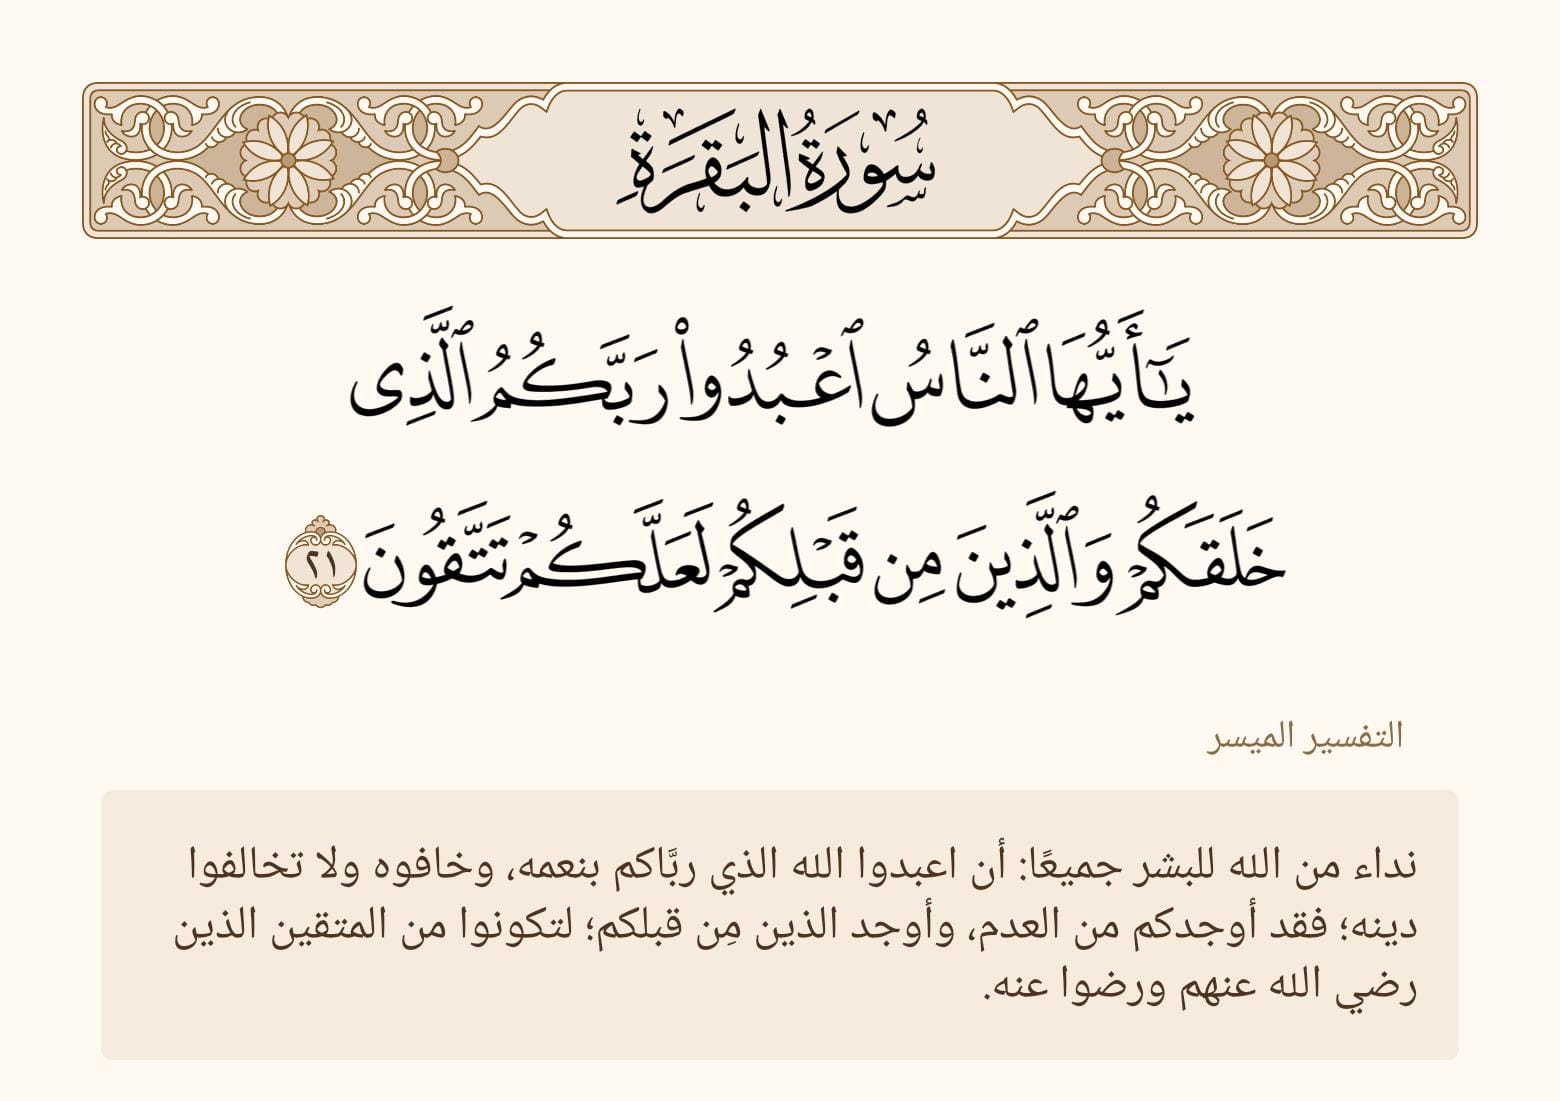 سُورَةُ البَقَرَةِ
يَٰٓأَيُّهَا ٱلنَّاسُ ٱعۡبُدُواْ رَبَّكُمُ ٱلَّذِى
خَلَقَكُمۡ وَٱلَّذِينَ مِن قَبۡلِكُمۡ لَعَلَّكُمۡ تَتَّقُونَ ٢١
التفسير الميسر
نداء من الله للبشر جميعًا: أن اعبدوا الله الذي ربَّاكم بنعمه، وخافوه ولا تخالفوا
دينه؛ فقد أوجدكم من العدم، وأوجد الذين مِن قبلكم؛ لتكونوا من المتقين الذين
رضي الله عنهم ورضوا عنه.